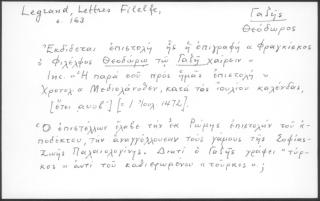 Legrand, Lettres Filelfe,
σ. 163
Γαζῆς
Θεόδωρος
Ἐκδίδεται ἐπιστολὴ ἧς ἡ ἐπιγραφὴ « Φραγκίσκος
ὁ Φιλέλφος Θεοδώρῳ τῷ Γαζῇ χαίρειν »
Inc. « Ἡ παρὰ σοῦ πρὸς ἡμᾶς ἐπιστολὴ »
Χρονολ. « Μεδιολάνοθεν, κατὰ τὰς ἰουλίου καλένδας,
[ἔτει αυοβ´] [= 1 Ἰουλ 1472].
Ὁ ἐπιστέλλων ἔλαβε τὴν ἐκ Ρώμης ἐπιστολὴν τοῦ ἀ-
ποδέκτου, τὴν ἀναγγέλλουσαν τοὺς γάμους τῆς Σοφίας-
Ζωῆς Παλαιολογίνης. Διατί ὁ Γαζῆς γράφει "τύρ-
κος" ἀντὶ τοῦ καθιερωμένου "τοῦρκος";